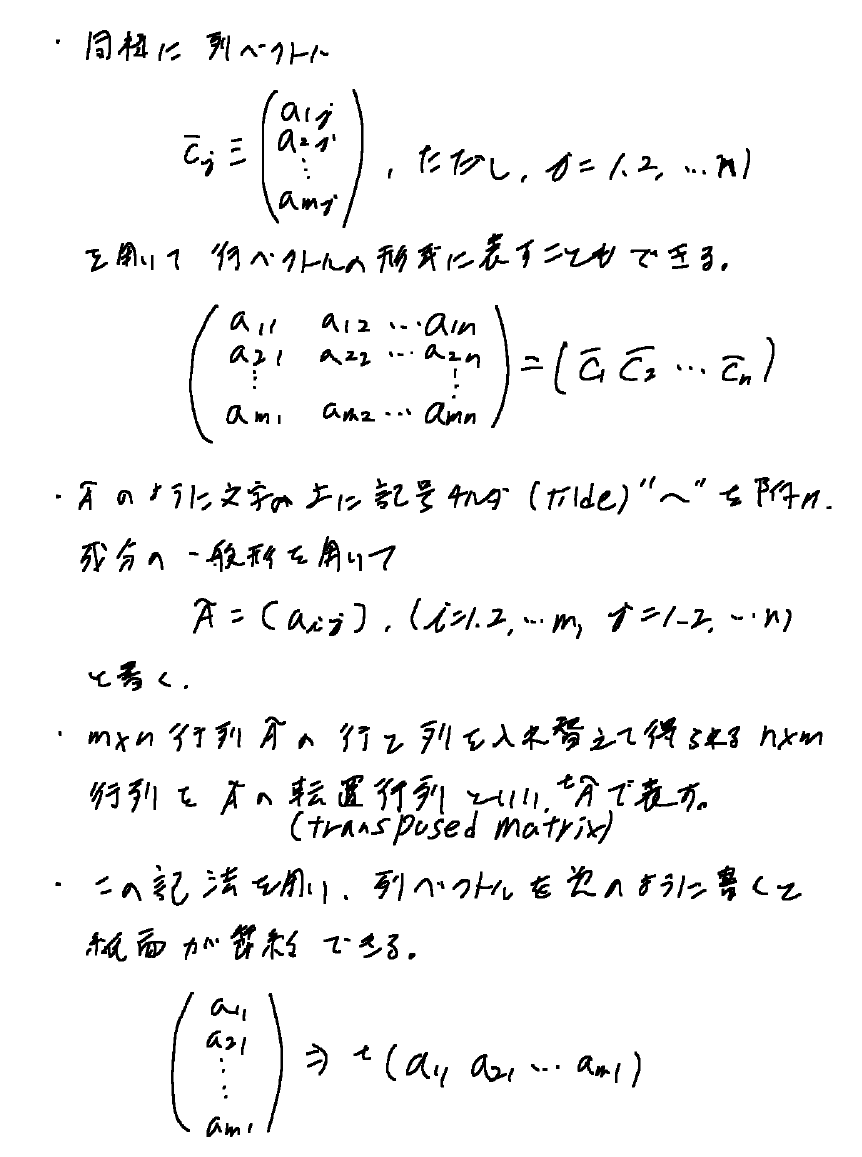 ・同様に 列ベクトル
c̄j ≡ (a1j a2j ⋮ amj), ただし, j = 1. 2, … n)
を用いて 行ベクトルの形式に表すこともできる。
(a11 a12 … a1n
a21 a22 … a2n
⋮ ⋮
am1 am2 … amn) = (c̄1 c̄2 … c̄n)
・Ã のように文字の上に記号チルダ (tilde) "〜" を附け.
成分の一般形を用いて
Ã = (aij), (i=1.2, … m, j=1-2, … n)
と書く.
・m×n 行列 Ã の 行と列を入れ替えて得られる n×m
行列を Ã の転置行列 といい, tÃ で表す。
(transposed matrix)
・この記法を用い, 列ベクトルを次のように書くと
紙面が節約できる。
(a11
a21
⋮
⋮
am1) ⇒ t(a11 a21 … am1)